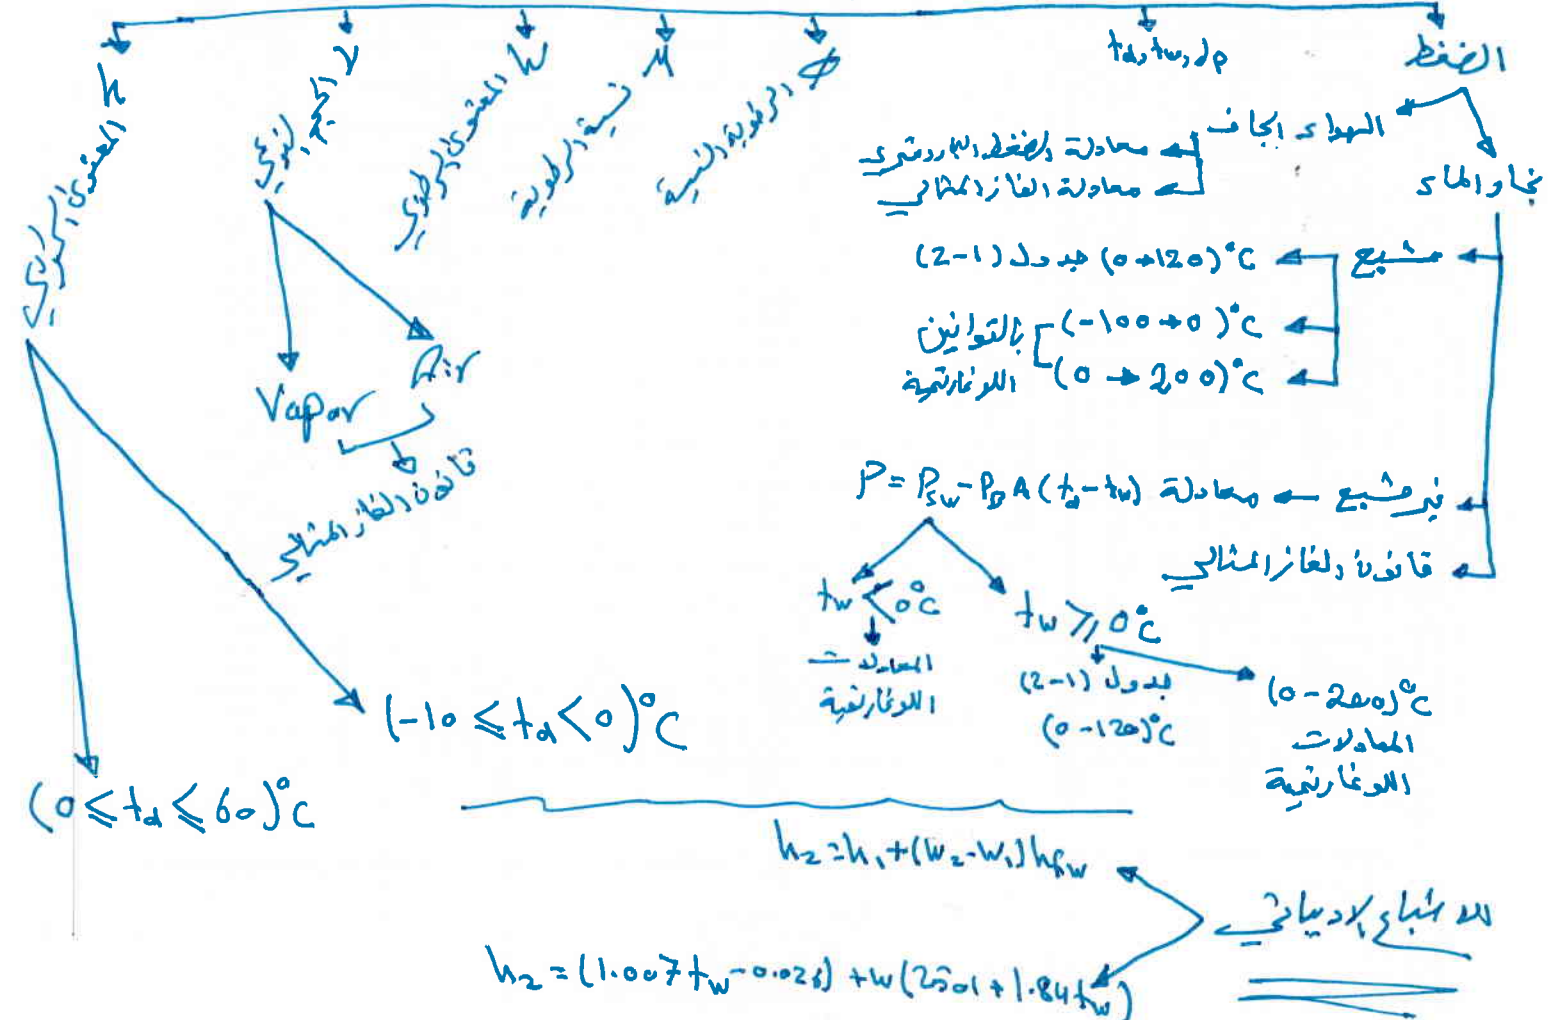 الضغط
td, tw, dp
الرطوبة النسبية ϕ
نسبة الرطوبة M
المحتوى الرطوبي W
الحجم النوعي V
المحتوى الحراري h
الهواء الجاف
معادلة الضغط البارومتري
معادلة الغاز المثالي
بخار الماء
مشبع
(0→120)°C جدول (2-1)
(-100→0)°C
(0→200)°C
بالقوانين
اللوغارتمية
غير مشبع ← معادلة P = Psw - PB A (td - tw)
قانون الغاز المثالي
tw < 0°C
المعادلات
اللوغارتمية
tw ⩾ 0°C
جدول (2-1)
(0-120)°C
(0-200)°C
المعادلات
اللوغارتمية
Vapor
Air
قانون الغاز المثالي
(-10 ⩽ td < 0)°C
(0 ⩽ td ⩽ 60)°C
للاشباع الاديباتي
h2 = h1 + (W2 - W1) hfw
h2 = (1.007 tw - 0.026) + W (2501 + 1.84 tw)